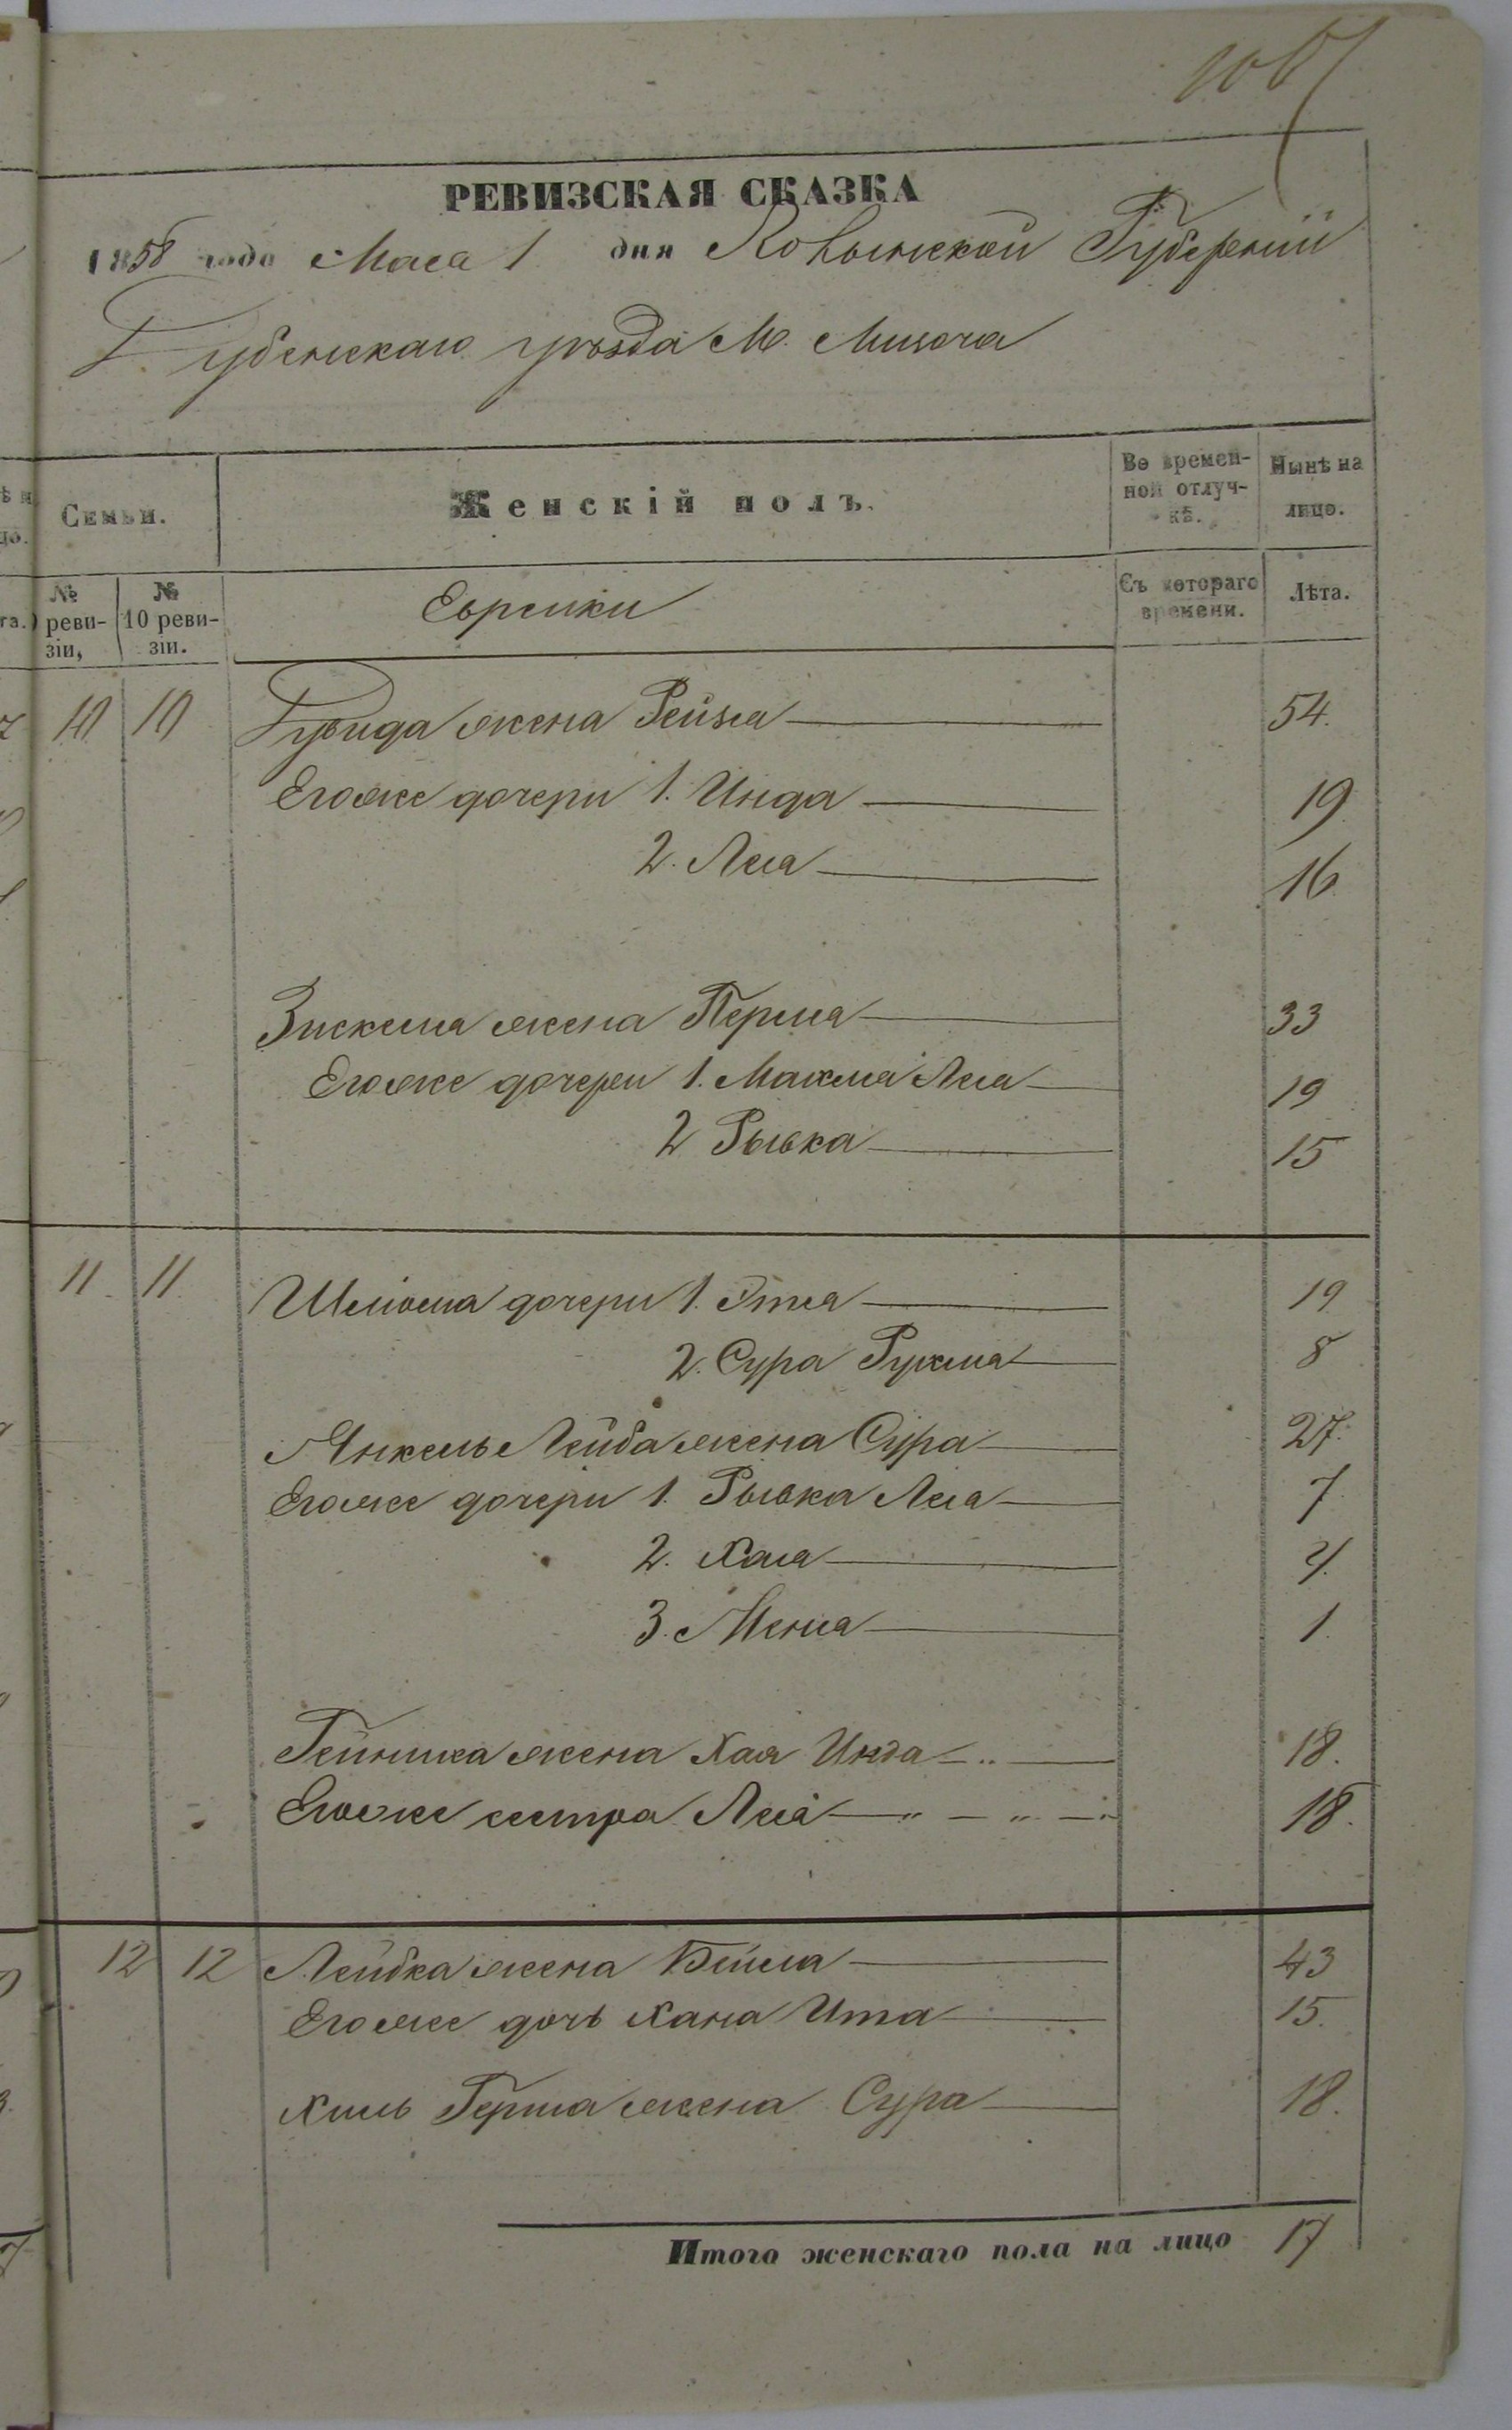 106
РЕВИЗСКАЯ СКАЗКА
1858 года Мая 1 дня Волынской Губерніи
Дубенскаго уѣзда М. Мизоча
Семьи.
Женскій полъ.
Во времен-
ной отлуч-
кѣ.
Нынѣ на
лицо.
№
реви-
зіи,
№
10 реви-
зіи.
Еврейки
Съ котораго
времени.
Лѣта.
10 10 жена Рейзя 54.
Его же дочери 1. Инда 19
2. Лея 16
Зискеля жена Перля 33
Его же дочери 1. Махля Лея 19
2 Рывка 15
11. 11. Шліома дочери 1. Этля 19
2. Сура Рухля 8
Янкель Лейба жена Сура 27.
Его же дочери 1. Рывка Лея 7
2. Хая 4.
3. Меня 1.
жена Хая Инда 18.
Его же сестра Лея 18.
12 12 Лейбка жена Бейла 43
Его же дочь Хана Ита 15.
Хиль Герша жена Сура 18.
Итого женскаго пола на лицо 17